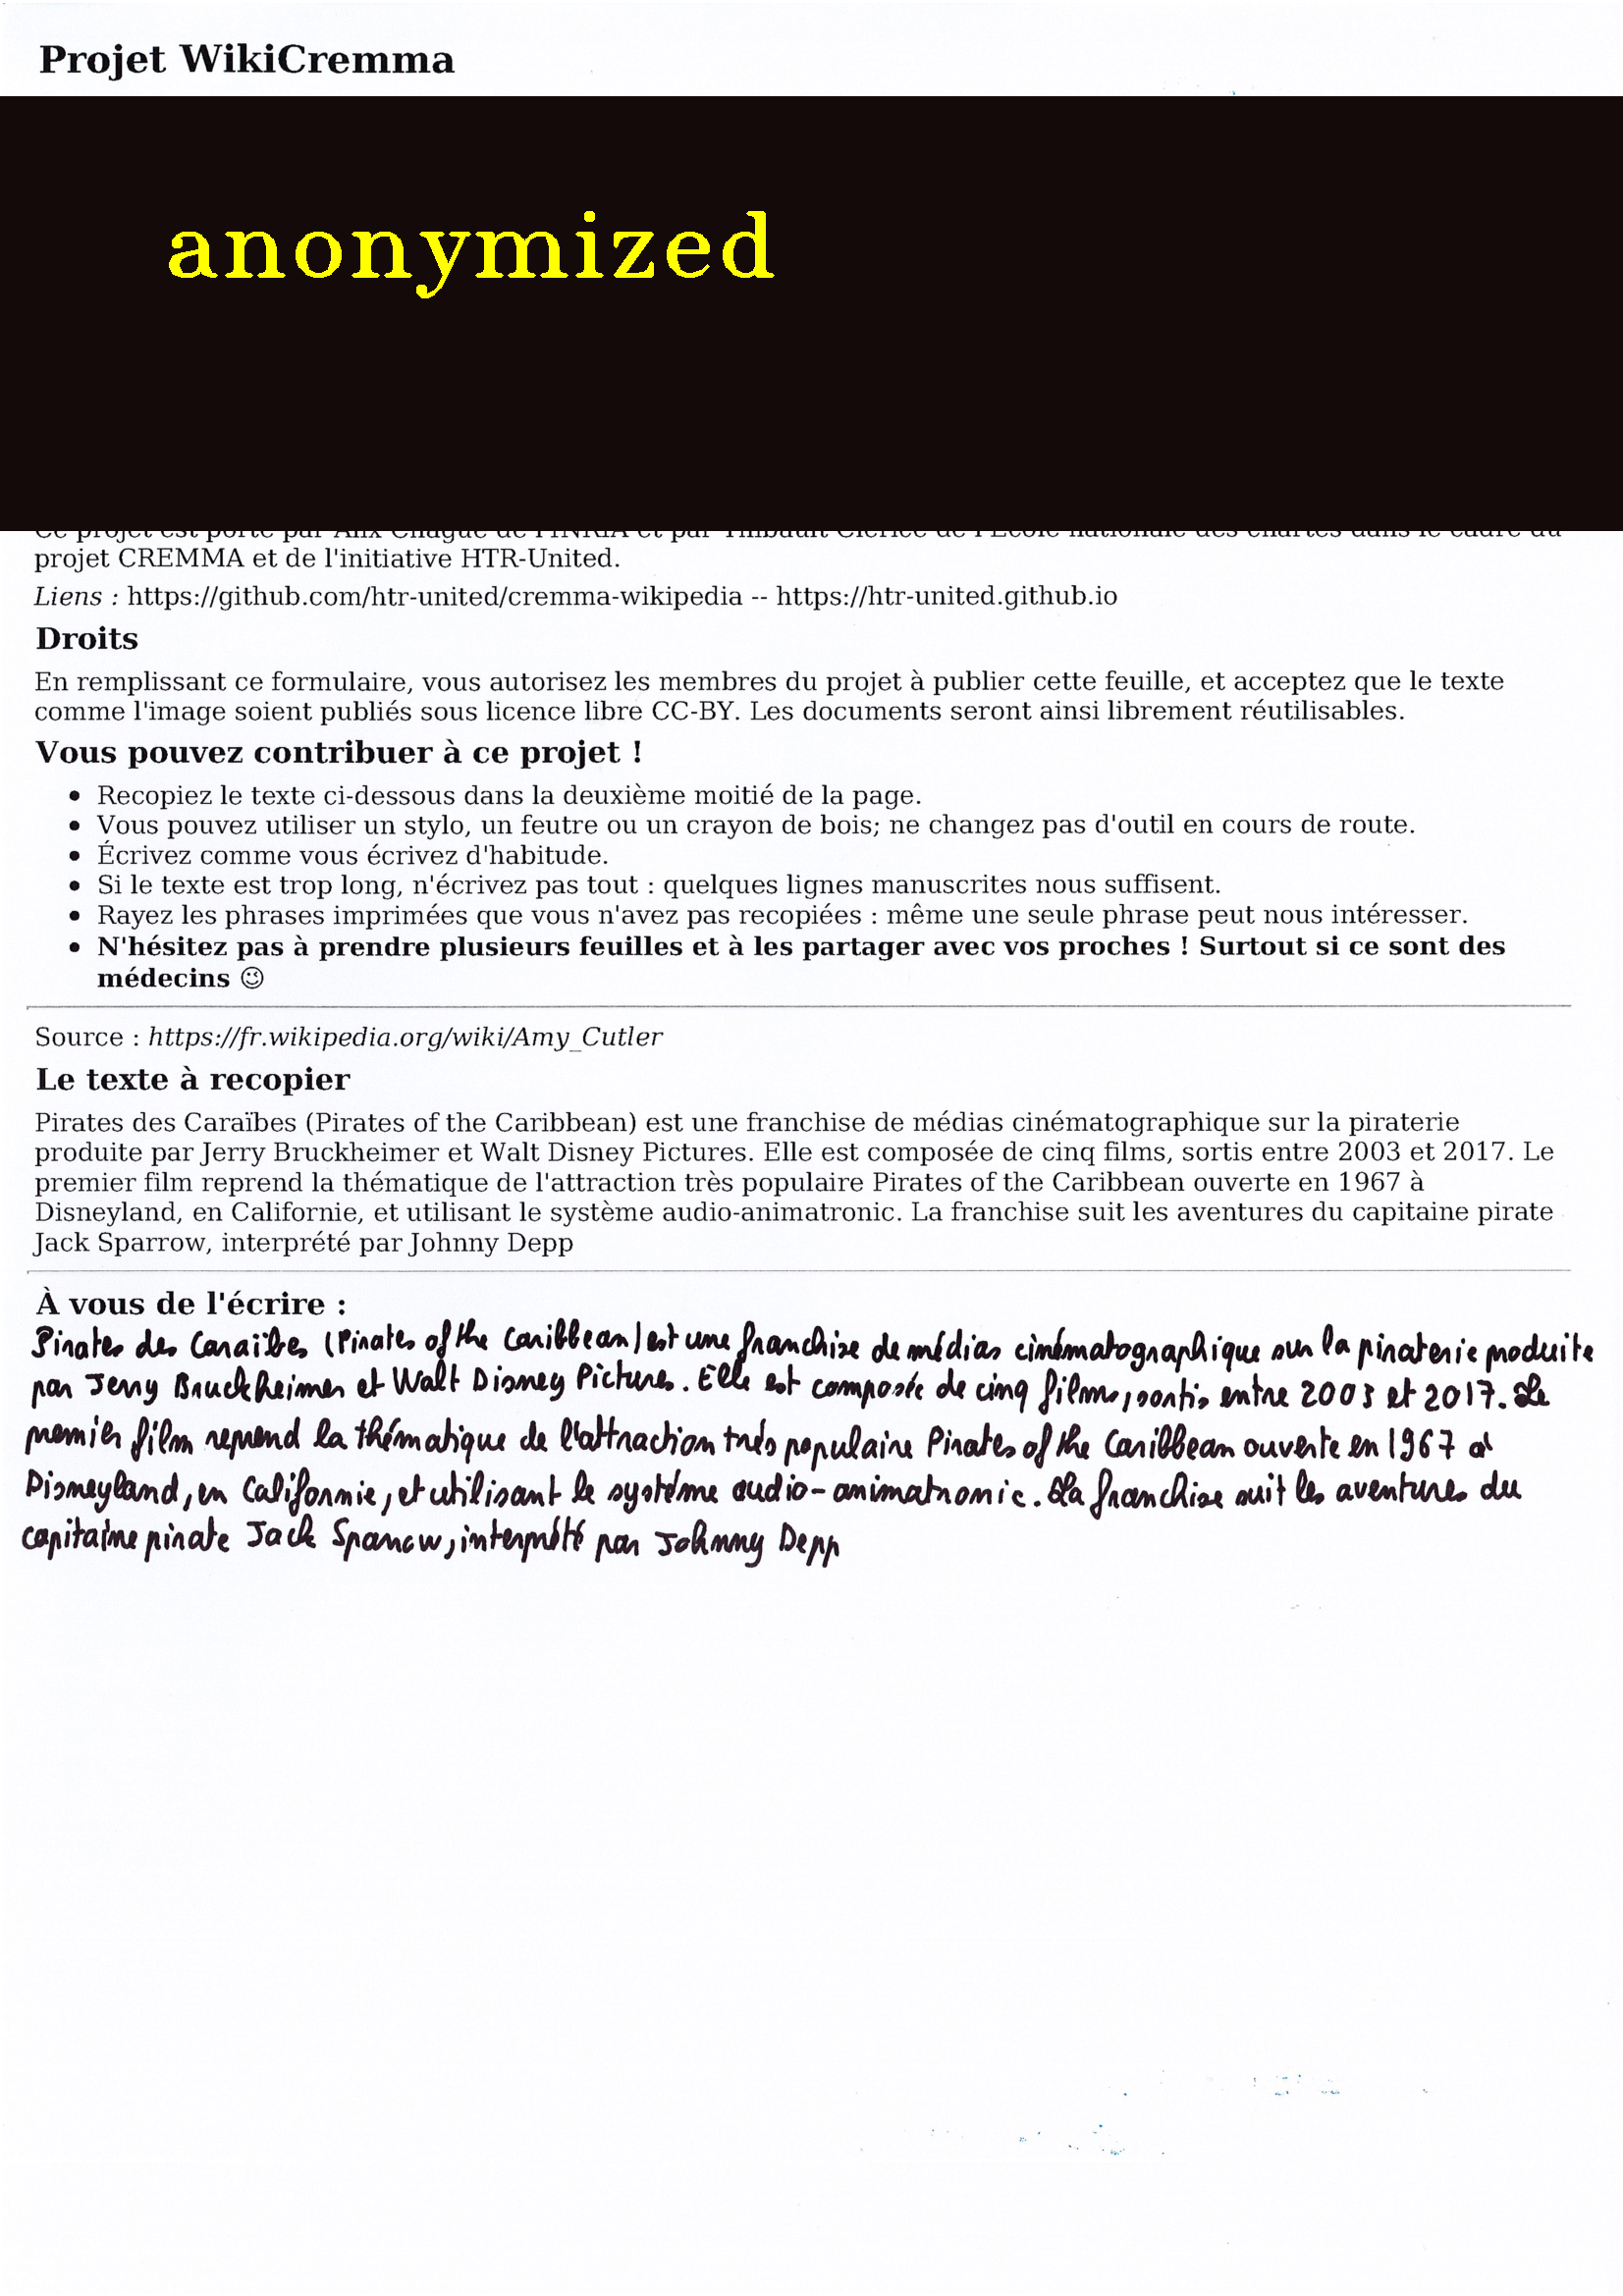 Projet WikiCremma
anonymized
Ce projet est porté par Alix Chagué de l'INRIA et par Thibault Clérice de l'École nationale des chartes dans le cadre du
projet CREMMA et de l'initiative HTR-United.
Liens : https://github.com/htr-united/cremma-wikipedia -- https://htr-united.github.io
Droits
En remplissant ce formulaire, vous autorisez les membres du projet à publier cette feuille, et acceptez que le texte
comme l'image soient publiés sous licence libre CC-BY. Les documents seront ainsi librement réutilisables.
Vous pouvez contribuer à ce projet !
• Recopiez le texte ci-dessous dans la deuxième moitié de la page.
• Vous pouvez utiliser un stylo, un feutre ou un crayon de bois; ne changez pas d'outil en cours de route.
• Écrivez comme vous écrivez d'habitude.
• Si le texte est trop long, n'écrivez pas tout : quelques lignes manuscrites nous suffisent.
• Rayez les phrases imprimées que vous n'avez pas recopiées : même une seule phrase peut nous intéresser.
• N'hésitez pas à prendre plusieurs feuilles et à les partager avec vos proches ! Surtout si ce sont des
médecins 😉
Source : https://fr.wikipedia.org/wiki/Amy_Cutler
Le texte à recopier
Pirates des Caraïbes (Pirates of the Caribbean) est une franchise de médias cinématographique sur la piraterie
produite par Jerry Bruckheimer et Walt Disney Pictures. Elle est composée de cinq films, sortis entre 2003 et 2017. Le
premier film reprend la thématique de l'attraction très populaire Pirates of the Caribbean ouverte en 1967 à
Disneyland, en Californie, et utilisant le système audio-animatronic. La franchise suit les aventures du capitaine pirate
Jack Sparrow, interprété par Johnny Depp
À vous de l'écrire :
Pirates des Caraïbes (Pirates of the Caribbean) est une franchise de médias cinématographique sur la piraterie produite
par Jerry Bruckheimer et Walt Disney Pictures. Elle est composée de cinq films, sortis entre 2003 et 2017. Le
premier film reprend la thématique de l'attraction très populaire Pirates of the Caribbean ouverte en 1967 à
Disneyland, en Californie, et utilisant le système audio-animatronic. La franchise suit les aventures du
capitaine pirate Jack Sparrow, interprété par Johnny Depp